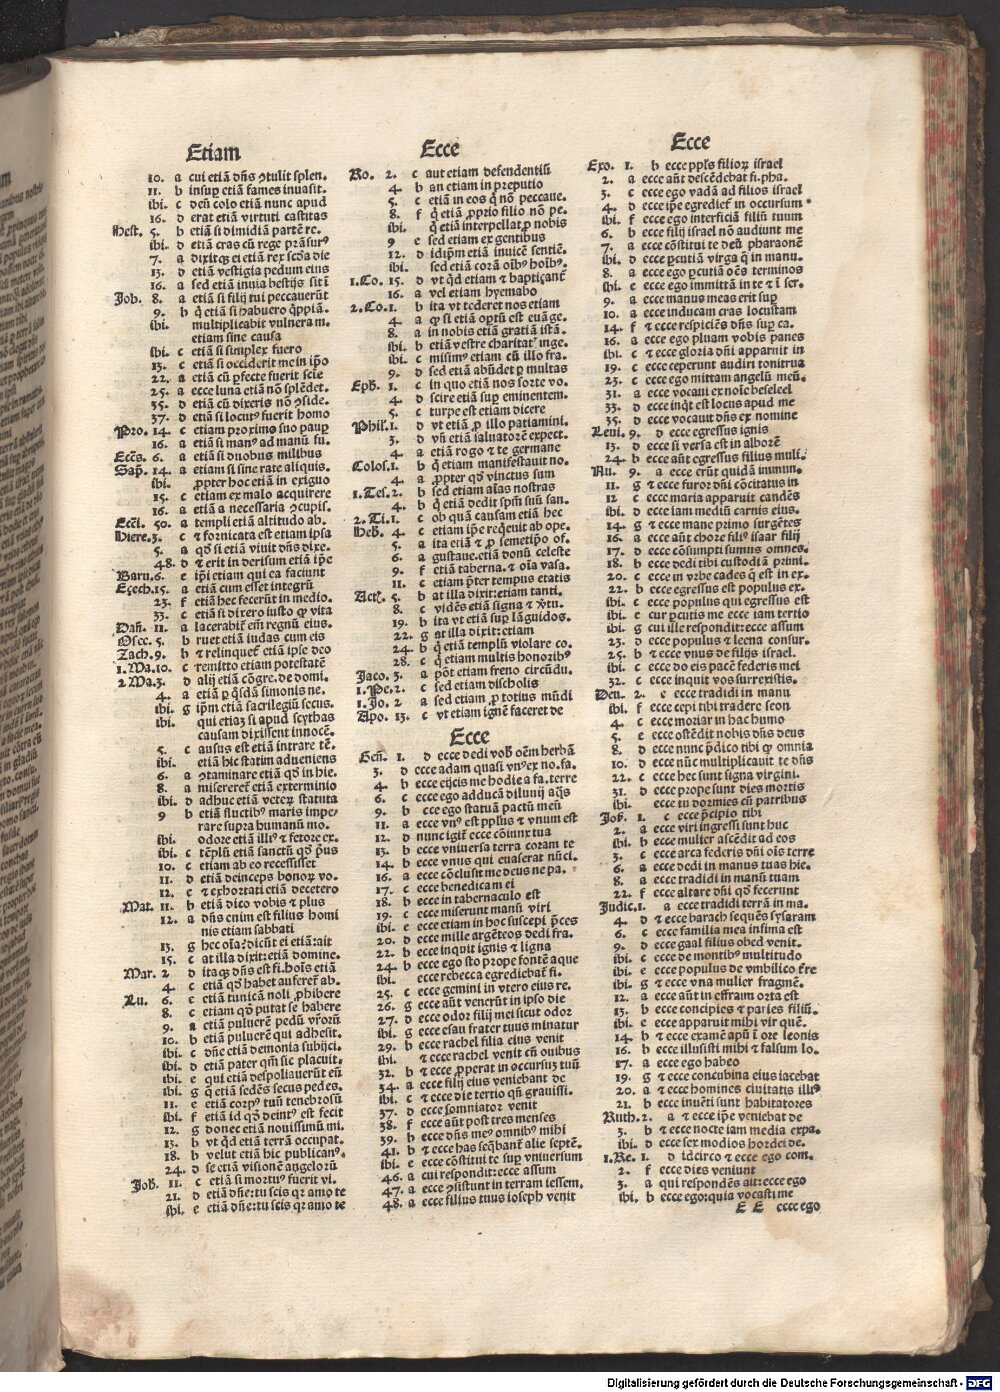 Etiam
10. a cui etiā dn̄s ꝯtulit splen.
11. b insuꝑ etiā fames inuasit.
ibi. c den̄ colo etiā nunc apud
16. d erat etiā virtuti castitas
Hest. 5. b etiā si dimidiā partē re.
ibi. d etiā cras cū rege prāsurꝰ
7. a dixitqꝫ ei etiā rex scd̄a die
13. d etiā vestigia pedum eius
16. a sed etiā inuia bestijs sitī
Job. 8. a etiā si filij tui peccauerūt
9. b q̄ etiā si habuero q̄ppiā.
ibi. multiplicabit vulnera m.
etiam sine causa
ibi. c etiā si simplex fuero
13. c etiā si occiderit me in ip̄o
22. a etiā cū ꝑfecte fuerit scie
25. a ecce luna etiā nō splēdet.
35. d etiā cū dixeris nō ꝯside.
37. d etiā si locutꝰ fuerit homo
Pro. 14. c etiam proximo suo pauꝑ
16. a etiā si manꝰ ad manū fu.
Eccs. 6. a etiā si duobus milibus
Sap. 14. a etiam si sine rate aliquis.
ibi. ꝓpter hoc etiā in exiguo
15. c etiam ex malo acquirere
16. a etiā a necessaria ꝯcupis.
Eccl. 50. a templi etiā altitudo ab.
Hiere. 3. c ⁊ fornicata est etiam ipsa
5. a qd̄ si etiā viuit dn̄s dixe.
48. d ⁊ erit in derisum etiā ip̄e
Baru. 6. e ip̄i etiam qui ea faciunt
Ezech. 15. a etiā cum esset integrū
23. f etiā hec fecerūt in medio.
33. c etiā si dixero iusto qꝫ vita
Dan̄. 11. a lacerabit̄ em̄ regnū eius.
Osee. 5. b ruet etiā iudas cum eis
Zach. 9. b ⁊ relinquet̄ etiā ipse deo
1. Ma. 10. c remitto etiam potestatē
2 Ma. 3. d alij etiā cōgre. de domi.
4. a etiā ꝑ q̄sdā simonis ne.
ibi. g ip̄m etiā sacrilegiū secus.
ibi. qui etiaꝫ si apud scythas
causam dixissent innocē.
5. c ausus est etiā intrare tē.
ibi. etiā hic statim adueniens
6. a ꝯtaminare etiā qd̄ in hie.
8. a misereret̄ etiā exterminio
ibi. d adhuc etiā veteꝝ statuta
9 b etiā fluctibꝰ maris impe-
rare supra humanū mo.
ibi. odore etiā illiꝰ ⁊ fetore ex.
ibi. c tēplū etiā sanctū qd̄ pͥus
10. c etiam ab eo recessisset
11. d etiā deinceps bonoꝝ vo.
12. e ⁊ exhortati etiā decetero
Mat. 11. b etiā dico vobis ⁊ plus
12. a dn̄s enim est filius homi
nis etiam sabbati
13. g hec oīa? dicūt ei etiā: ait
15. c at illa dixit: etiā domine.
Mar. 2 d itaqꝫ dn̄s est fi. hoīs etiā
4. c etiā qd̄ habet auferet̄ ab.
Lu. 6. c etiā tunicā noli ꝓhibere
8. c etiam qd̄ putat se habere
9. a etiā puluerē pedū vr̄oꝝū
10. b etiā puluerē qui adhesit.
ibi. c dn̄e etiā demonia subijci.
ibi. d etiā pater qm̄ sic placuit.
ibi. e qui etiā despoliauerūt eū
ibi. g q̄ etiā sedēs secus pedes.
11. e etiā corpꝰ tuū tenebrosū
ibi. f etiā id qd̄ deintꝰ est fecit
12. g donec etiā nouissimū mi.
13. b vt qd̄ etiā terrā occupat.
18. b velut etiā hic publicanꝰ.
24. d se etiā visionē angelorū
Joh. 11. c etiā si mortuꝰ fuerit vi.
21. d etiā dn̄e: tu scis qꝛ amo te
ibi. e etiā dn̄e: tu scis qꝛ amo te
Ecce
Ro. 2. c aut etiam defendentiū
4. b an etiam in preputio
5. c etiā in eos q̄ nō peccaue.
8. f q̄ etiā ꝓprio filio nō pe.
ibi. q̄ etiā interpellat ꝓ nobis
9 e sed etiam ex gentibus
12. d idip̄m etiā inuicē sentiē.
ibi. sed etiā corā oībꝰ hoībꝰ.
1. Co. 15. d vt qd̄ etiam ⁊ baptizant̄
16. a vel etiam hyemabo
2. Co. 1. b ita vt tederet nos etiam
4. a qꝫ si etiā optū est euāge.
8. a in nobis etiā gratiā istā.
ibi. b etiā vestre charitatꝭ inge.
ibi. c misimꝰ etiam cū illo fra.
9. d sed etiā abūdet ꝑ multas
Eph. 1. c in quo etiā nos sorte vo.
4. d scire etiā suꝑ eminentem.
5. c turpe est etiam dicere
Phil. 1. d vt etiā ꝓ illo patiamini.
3. d vn̄ etiā saluatorē expect.
4. a etiā rogo ⁊ te germane
Colos. 1. b q̄ etiam manifestauit no.
4. a ꝓpter qd̄ vinctus sum
1. Tes. 2. b sed etiam aīas nostras
4. b q̄ etiā dedit spm̄ suū san.
2. Ti. 1. c ob quā causam etiā hec
Heb. 4. c etiam ip̄e reqͥeuit ab ope.
5. a ita etiā ⁊ ꝓ semetip̄o of.
6. a gustaue. etiā donū celeste
9. f etiā taberna. ⁊ oīa vasa.
11. c etiam pter tempus etatis
Act. 5. b at illa dixit: etiam tanti.
8. c vidēs etiā signa ⁊ v̄tu.
19. b ita vt etiā suꝑ lāguidos.
22. g at illa dixit: etiam
24. b q̄ etiā templū violare co.
28. c q̄ etiam multis honoribꝰ
Jaco. 3. a pōt etiam freno circūdu.
1. Pe. 2. c sed etiam discholis
1. Jo. 2 a sed etiam ꝓ totius mūdi
Apo. 13. c vt etiam ignē faceret de
Ecce
Gen̄. 1. d ecce dedi vob̄ oēm herbā
3. d ecce adam quasi vnꝰ ex no. fa.
4. b ecce eijcis me hodie a fa. terre
6. c ecce ego adducā diluuij aq̄s
9. b cce ego statuā pactū meū
11. a ecce vnꝰ est ppl̄us ⁊ vnum est
12. d nunc igit̄ ecce cōiunx tua
13. b ecce vniuersa terra coram te
14. b ecce vnus qui euaserat nūci.
16. a ecce cōclusit me deus ne pa.
17. c ecce benedicam ei
18. b ecce in tabernaculo est
19. c ecce miserunt manū viri
ibi. e ecce etiam in hoc suscepi pͥces
20. d ecce mille argēteos dedi fra.
22. b ecce inquit ignis ⁊ ligna
24. b ecce ego sto prope fontē aque
ibi. ecce rebecca egrediebat̄ fi.
25. c ecce gemini in vtero eius re.
26. g ecce aūt venerūt in ipso die
27. d ecce odor filij mei sicut odor
ibi. g ecce esau frater tuus minatur
29. b ecce rachel filia eius venit
ibi. ⁊ ecce rachel venit cū ouibus
32. b ⁊ ecce ꝓperat in occursuꝫ tuū
34. a ecce filij eius veniebant de
ibi. c ⁊ ecce die tertio qn̄ grauissi.
37. d ecce somniator venit
38. f ecce aūt post tres menses
39. b ecce dn̄s meꝰ omnibꝰ mihi
41. b ⁊ ecce has seq̄bant̄ alie septē.
ibi. e ecce cōstitui te suꝑ vniuersum
46. a cui respondit: ecce assum
47. a ecce ꝯsistunt in terram iessem.
48. a ecce filius tuus ioseph venit
Ecce
Exo. 1. b ecce ppl̄s filioꝝ israel
2. a ecce aūt descēdebat fi. pha.
3. c ecce ego vadā ad filios israel
4. d ecce ip̄e egredief in occursum
ibi. f ecce ego interficiā filiū tuum
6. b ecce filij israel nō audiunt me
7. a ecce cōstitui te deū pharaonē
ibi. d ecce ꝑcutiā virga q̄ in manu.
8. a ecce ego ꝑcutiā oēs terminos
ibi. e ecce ego immittā in te ⁊ ī ser.
9. a ecce manus mea erit suꝑ
10. a ecce inducam cras locustam
14. f ⁊ ecce respiciēs dn̄s suꝑ ca.
16. a ecce ego pluam vobis panes
ibi. c ⁊ ecce gloria dn̄i apparuit in
19. c ecce ceperunt audiri tonitrua
23. c ecce ego mittam angelū meū.
31. a ecce vocaui ex noīe beseleel
33. d ecce inqͥt est locus apud me
35. d ecce vocauit dn̄s ex nomine
Leui. 9. d ecce egressus ignis
13. d ecce si versa est in alborē
24. b ecce aūt egressus filius muli.
Nu. 9. a ecce erūt quidā immun.
11. g ⁊ ecce furor dn̄i cōcitatus in
12 c ecce maria apparuit candēs
ibi. d ecce iam mediū carnis eius.
14. g ⁊ ecce mane primo surgētes
16. a ecce aūt chore filiꝰ isaar filij
17. d ecce cōsumpti sumus omnes.
18. b ecce dedi tibi custodiā primi.
20. c ecce in vrbe cades q̄ est in ex.
22. b ecce egressus est populus ex.
ibi. c ecce populus qui egressus est
ibi. e cur ꝑcutis me ecce iam tertio
ibi. g cui ille respondit: ecce assum
23. d ecce populus ⁊ leena consur.
25. b ⁊ ecce vnus de filijs israel.
ibi. c ecce do eis pacē federis mei
32. c ecce inquit vos surrexistis.
Deu. 2. e ecce tradidi in manu
ibi. f ecce cepi tibi tradere seon
4. c ecce morior in hac humo
5. e ecce ostēdit nobis dn̄s deus
8. d ecce nunc p̄dico tibi qꝫ omnia
10. d ecce nūc multiplicauit te dn̄s
22. c ecce hec sunt signa virgini.
31. d ecce prope sunt dies mortis
ibi. ecce tu dormies cū patribus
Jos. 1. c ecce p̄cipio tibi
2. a ecce viri ingressi sunt huc
ibi. b ecce mulier ascēdit ad eos
3. c ecce arca federis dn̄i oīs terre
6. a ecce dedi in manus tuas hie.
8. a ecce tradidi in manū tuam
22. f ecce altare dn̄i qd̄ fecerunt
Judic. 1. a ecce tradidi terrā in ma.
4. d ⁊ ecce barach sequēs sysaram
6. c ecce familia mea infima est
9. d ecce gaal filius obed venit.
ibi. c ecce de montibꝰ multitudo
ibi. e ecce populus de vmbilico t̄re
ibi. g ⁊ ecce vna mulier fragmē.
12. a ecce aūt in effraim orta est
13. b ecce concipies ⁊ paries filiū.
ibi. e ecce apparuit mihi vir quē.
14. b ⁊ ecce examē apū ī ore leonis
16. b ecce illusisti mihi ⁊ falsum lo.
17. a ecce ego habeo
19. g ⁊ ecce concubina eius iacebat
20. a ⁊ ecce homines ciuitatis illiꝰ
21. b ecce inuēti sunt habitatores
Ruth. 2. a ⁊ ecce ip̄e veniebat de
3. b ⁊ ecce nocte iam media expa.
ibi. d ecce sex modios hordei de.
1. Re. 1. d idcirco ⁊ ecce ego com.
2. f ecce dies veniunt
3. a qui respondēs ait: ecce ego
ibi. b ecce ego: quia vocasti me
E E ecce ego
Digitalisierung gefördert durch die Deutsche Forschungsgemeinschaft - DFG